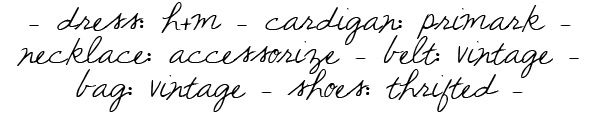 - dress: h+m - cardigan: primark -
necklace: accessorize - belt: vintage -
bag: vintage - shoes: thrifted -